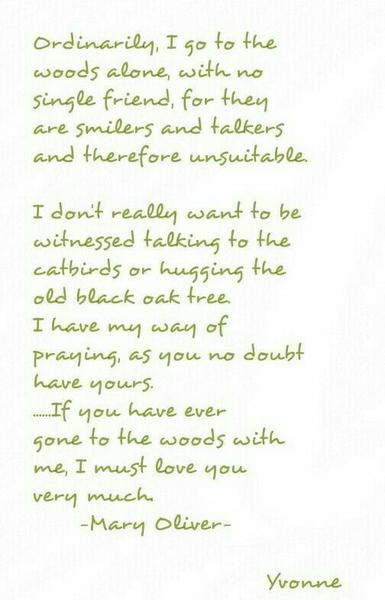 Ordinarily, I go to the
woods alone, with no
single friend, for they
are smilers and talkers
and therefore unsuitable.
I don't really want to be
witnessed talking to the
catbirds or hugging the
old black oak tree.
I have my way of
praying, as you no doubt
have yours.
......If you have ever
gone to the woods with
me, I must love you
very much.
-Mary Oliver-
Yvonne